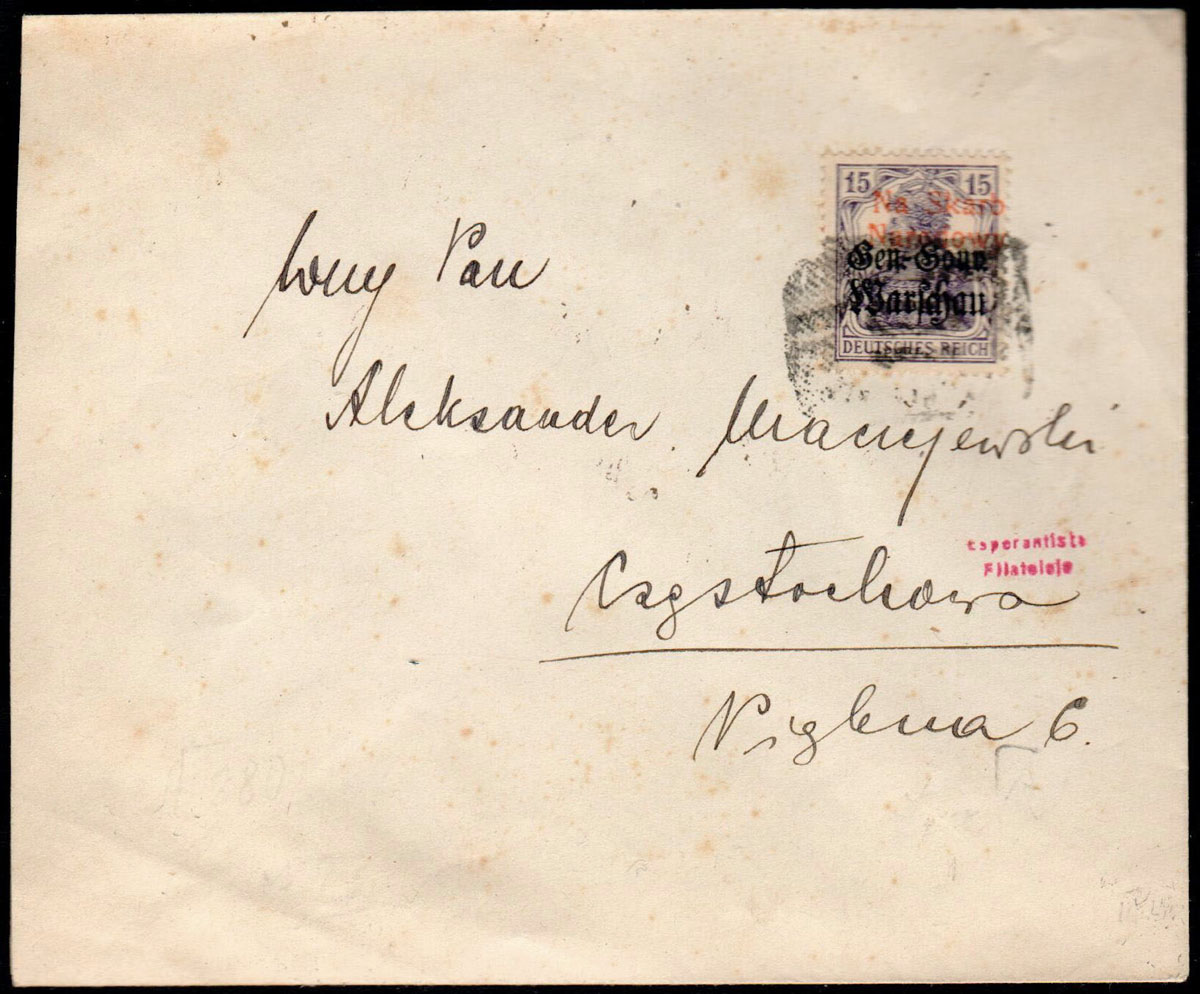 15 15
Na Skarb
Narodowy
Gen.-Gouv.
Warschau
DEUTSCHES REICH
Wny Pan
Aleksander Maciejewski
Częstochowa
Esperantista
Filatelejo
Piękna 6.